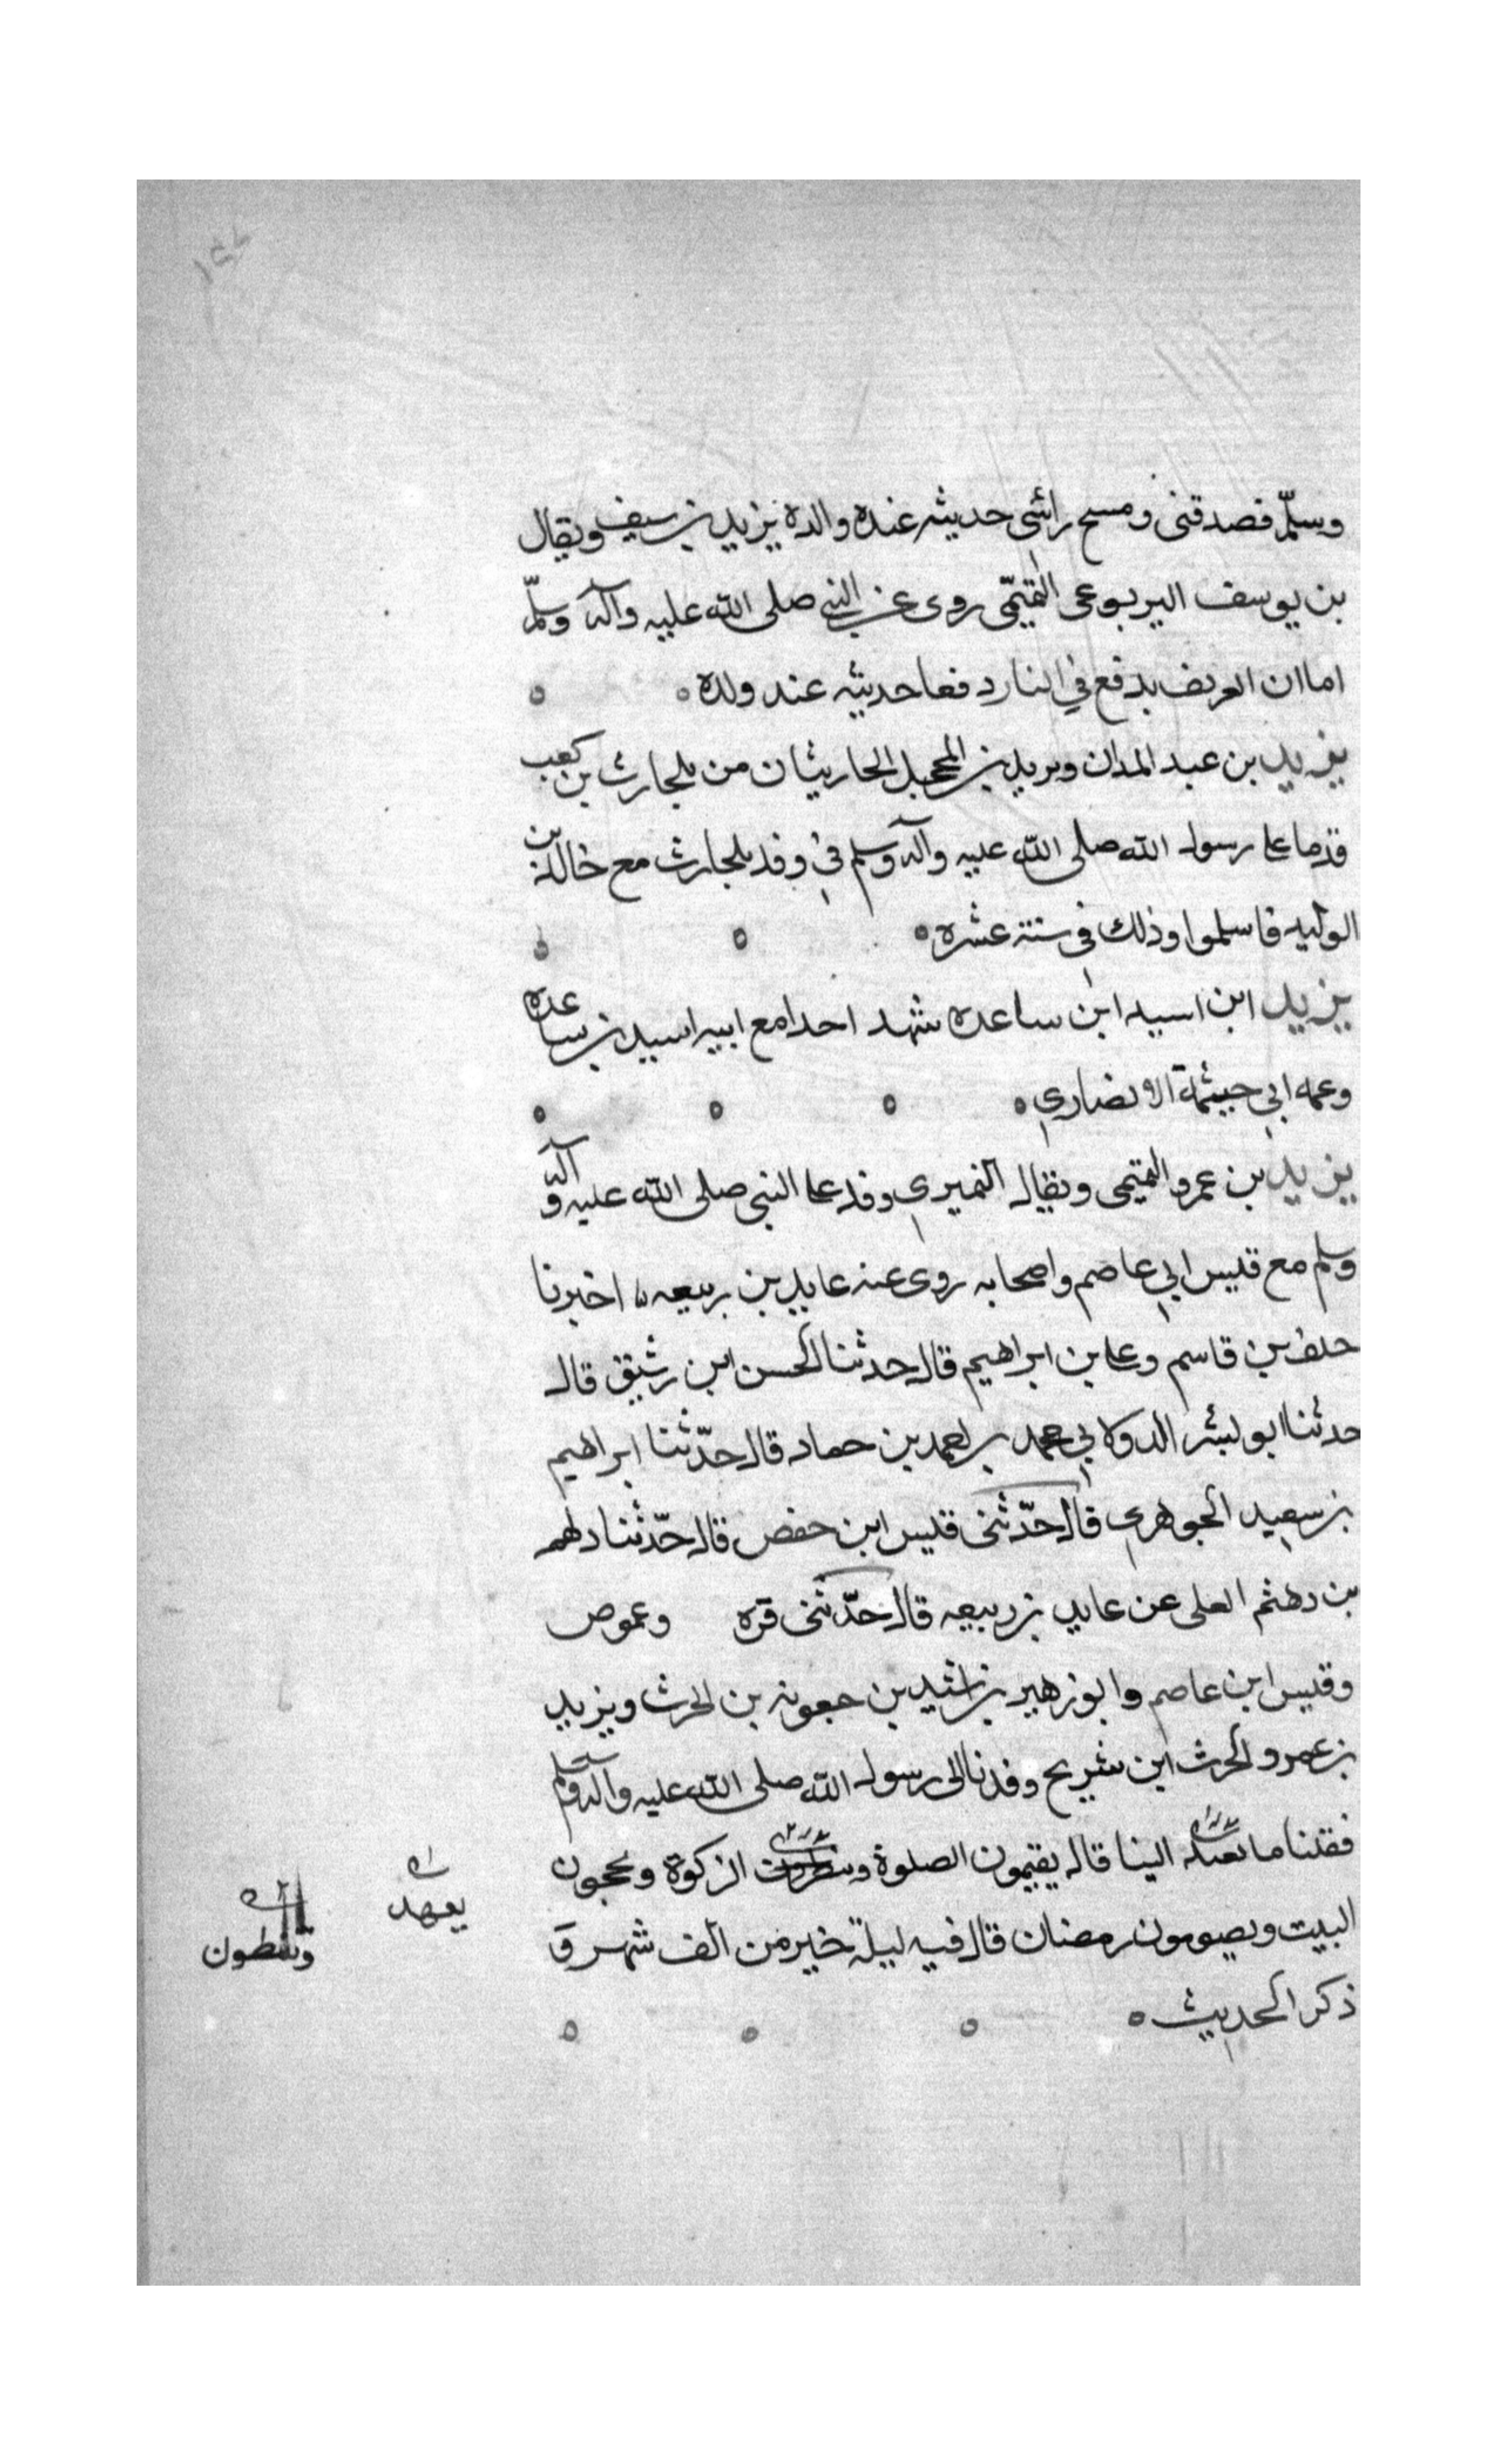 وسلّم فصدقنى ومسح راسى حديثه عنده والده يزيد بن سيف ويقال
بن يوسف اليربوعى التميمى روى عن النبى صلى الله عليه وآله وسلّم
اما ان العريف يدفع في النار دفعا حديثه عند ولده
يزيد بن عبد المدان ويزيد بن المحجل الحارثيان من بلحارث بن كعب
قدما على رسول الله صلى الله عليه وآله وسلم في وفد بلحارث مع خالد بن
الوليد فاسلموا وذلك في سنة عشره
يزيد ابن اسيد ابن ساعده شهد احدا مع ابيه اسيد بن ساعده
وعمه ابي حيثمة الانصاري
يزيد بن عمرو التميمى ويقال النميري وفد على النبى صلى الله عليه وآله
وسلم مع قيس ابي عاصم واصحابه روى عنه عايد بن ربيعه اخبرنا
خلف بن قاسم وعلى بن ابراهيم قال حدثنا الحسن ابن رشيق قال
حدثنا ابو بشر الدولابي محمد بن احمد بن حماد قال حدّثنا ابراهيم
بن سعيد الجوهري قال حدّثنى قيس ابن حفص قال حدّثنا دلهم
بن دهثم العلى عن عايد بن ربيعه قال حدّثنى قره وعموص
وقيس ابن عاصم وابو زهير بن اشيد بن جعونه بن الحرث ويزيد
بن عمرو الحرث ابن شريح وفدنا الى رسول الله صلى الله عليه وآله وسلم
فقلنا ما تعهد الينا قال يقيمون الصلوة الزكوة ويحجون
يعهد
البيت ويصومون رمضان قال فيه ليلة خير من الف شهر و
وتنطون
ذكر الحديث